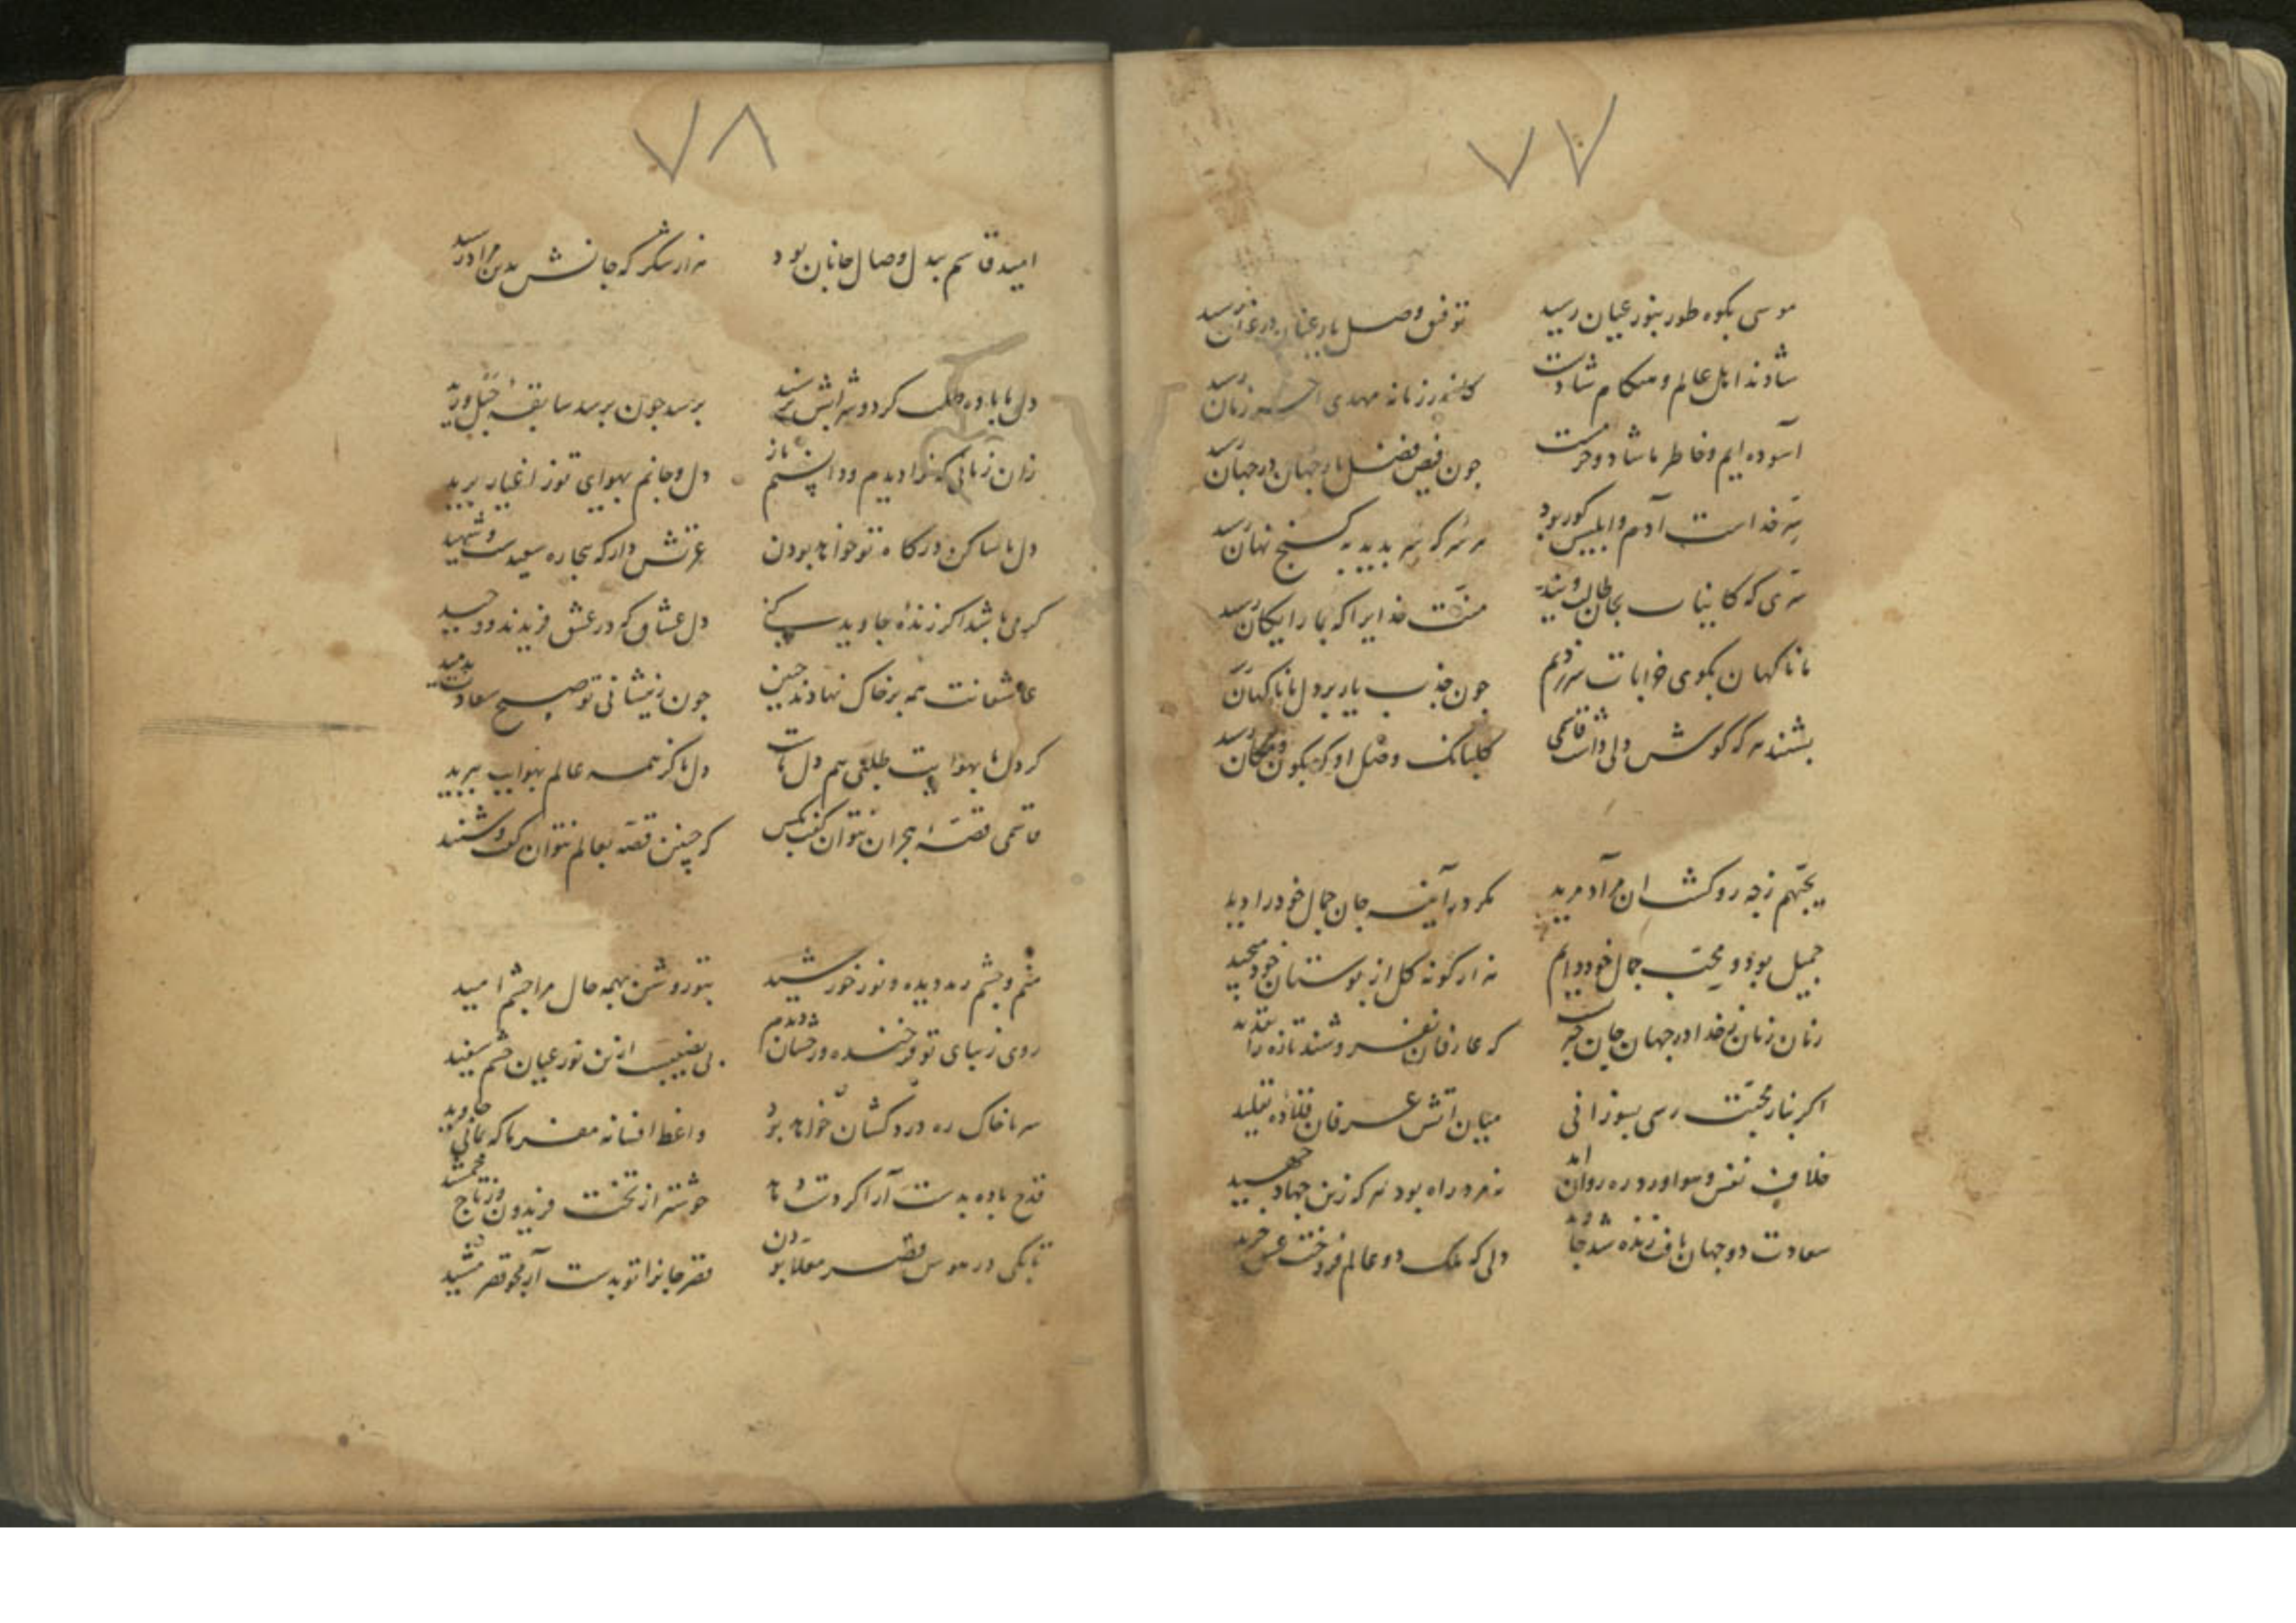 ۷۷
موسی بکوه طور بنور عیان رسید
توفیق وصل یار عنان در عنان رسید
شادند اهل عالم و هنکام شادیست
کاندر زمانه مهدی آخر زمان رسید
آسوده ایم و خاطر ما شاد و خرمست
چون فیض فضل یار جهان در جهان رسید
سرّ خداست آدم و ابلیس کور بود
هر سر که سر بدید به کنج نهان رسید
سرّی که کاینات بجان طالب ویند
منّت خدایرا که بما رایکان رسید
ما ناکهان بکوی خرابات سر زدیم
چون جذب یار بر دل ما ناکهان رسید
بشنید هر که کوش دلی داشت قاسمی
کلبانک وصل او که بکون و مکان رسید
یحبّهم ز چه رو کشت ان مراد مرید
مکر در آینه جان جمال خود را دید
جمیل بود و محبّ جمال خود دایم
هزار کونه کل از بوستان خود می‌چید
اکر بنار محبّت رسی بسوزانی
میان آتش عرفان قلاده تقلید
خلاف نفس و هوا ورد ره روان آمد
نه مرد راه بود هر که زین جهاد جهید
سعادت دو جهان یافت زنده شد جاوید
دلی که ملک دو عالم فروخت عشق خرید
۷۸
امید قاسم بیدل وصال جانان بود
هزار شکر که جانش بدین مراد رسید
دل ما باده طلب کرد و شرابش برسید
برسد چون برسد سابقهٔ حبل ورید
زان زمانی که ترا دیدم و دانستم باز
دل و جانم بهوای تو ز اغیار برید
دل ما ساکن درکاه تو خواهد بودن
عزتش دار که بیچاره سعیدست و شهید
کرمی باشد اکر زندهٔ جاوید کنی
دل عشاق که در عشق فریدند و وحید
عاشقانت همه بر خاک نهادند جبین
چون ز پیشانی تو صبح سعادت بدمید
کر دل ما بهوایت طلبی هم دل ماست
دل ما کز همه عالم بهوایت ببرید
قاسمی قصهٔ هجران نتوان کفت بکس
که چنین قصّه بعالم نتوان کفت و شنید
منم و چشم رمد دیده و نور خورشید
بتو روشن بهمه حال مرا چشم امید
روی زیبای تو فرخنده و رخشان دیدم
بی نصیبست ازین نور عیان چشم سفید
سر ما خاک ره دردکشان خواهد بود
واعظ افسانه مفرما که بمانی جاوید
قدح باده بدست آر اکر دست دهد
خوشتر از تخت فریدون و ز تاج جمشید
تا بکی در هوس قصر معلا بودن
قصر جانرا تو بدست آر نحو قصر مشید